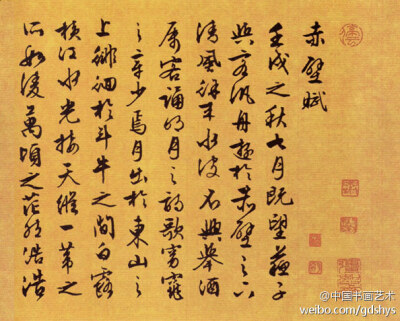 赤壁賦
壬戌之秋七月既望蘇子
與客汎舟遊於赤壁之下
清風徐来水波不興舉酒
屬客誦明月之詩歌窈窕
之章少焉月出於東山之
上徘徊於斗牛之間白露
横江水光接天縱一葦之
所如凌萬頃之茫然浩浩
@中国书画艺术
weibo.com/gdshys